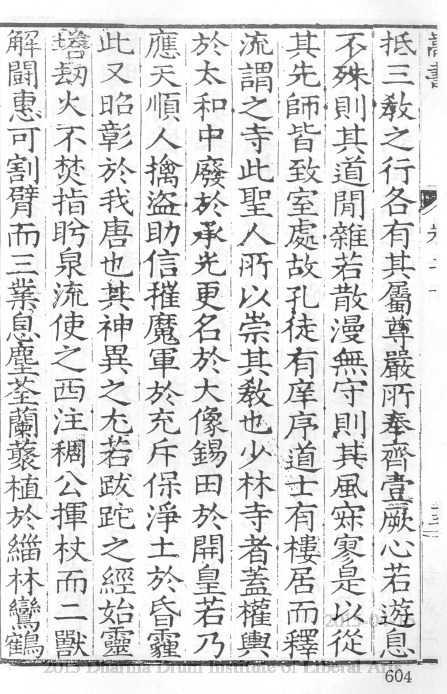 抵三敎之行各有其屬尊嚴所奉齊壹厥心若遊息
不殊則其道閒雜若散漫無守則其風㝥寥是以從
其先師皆致室處故孔徒有庠序道士有樓居而釋
流謂之寺此聖人所以崇其敎也少林寺者蓋權輿
於太和中廢於承光更名於大像錫田於開皇若乃
應天順人擒盗助信摧魔軍於充斥保淨土於昏霾
此又昭彰於我唐也其神異之尤若跋跎之經始靈
塔劫火不焚指眕泉流使之西注稠公揮杖而二獸
解鬪惠可割臂而三業息塵荃蘭藂植於緇林鸞鶴
2013 Dharma Drum Institute of Liberal Arts
604